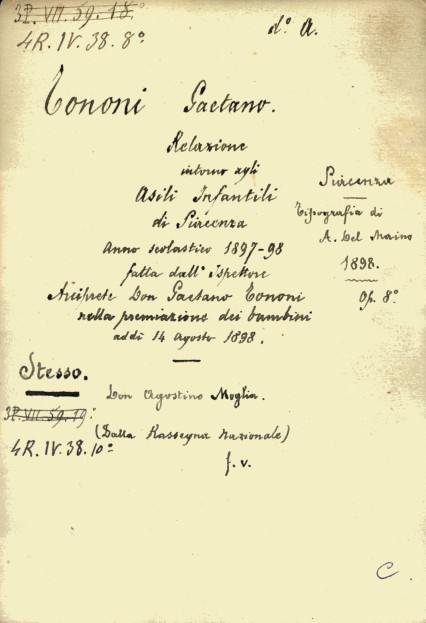 3P. VII. 59. 18°
4R. IV. 38. 8°
d.° A.
Tononi Gaetano.
Relazione
intorno agli
Asili Infantili
di Piacenza
Anno scolastico 1897-98
fatta dall' Ispettore
Arciprete Don Gaetano Tononi
nella premiazione dei bambini
addì 14 Agosto 1898.
Piacenza
Tipografia di
A. Del Maino
1898.
Op. 8°
Stesso.
Don Agostino Moglia.
3P. VII. 59. 19°
4R. IV. 38. 10°
(Dalla Rassegna Nazionale)
f. v.
C.